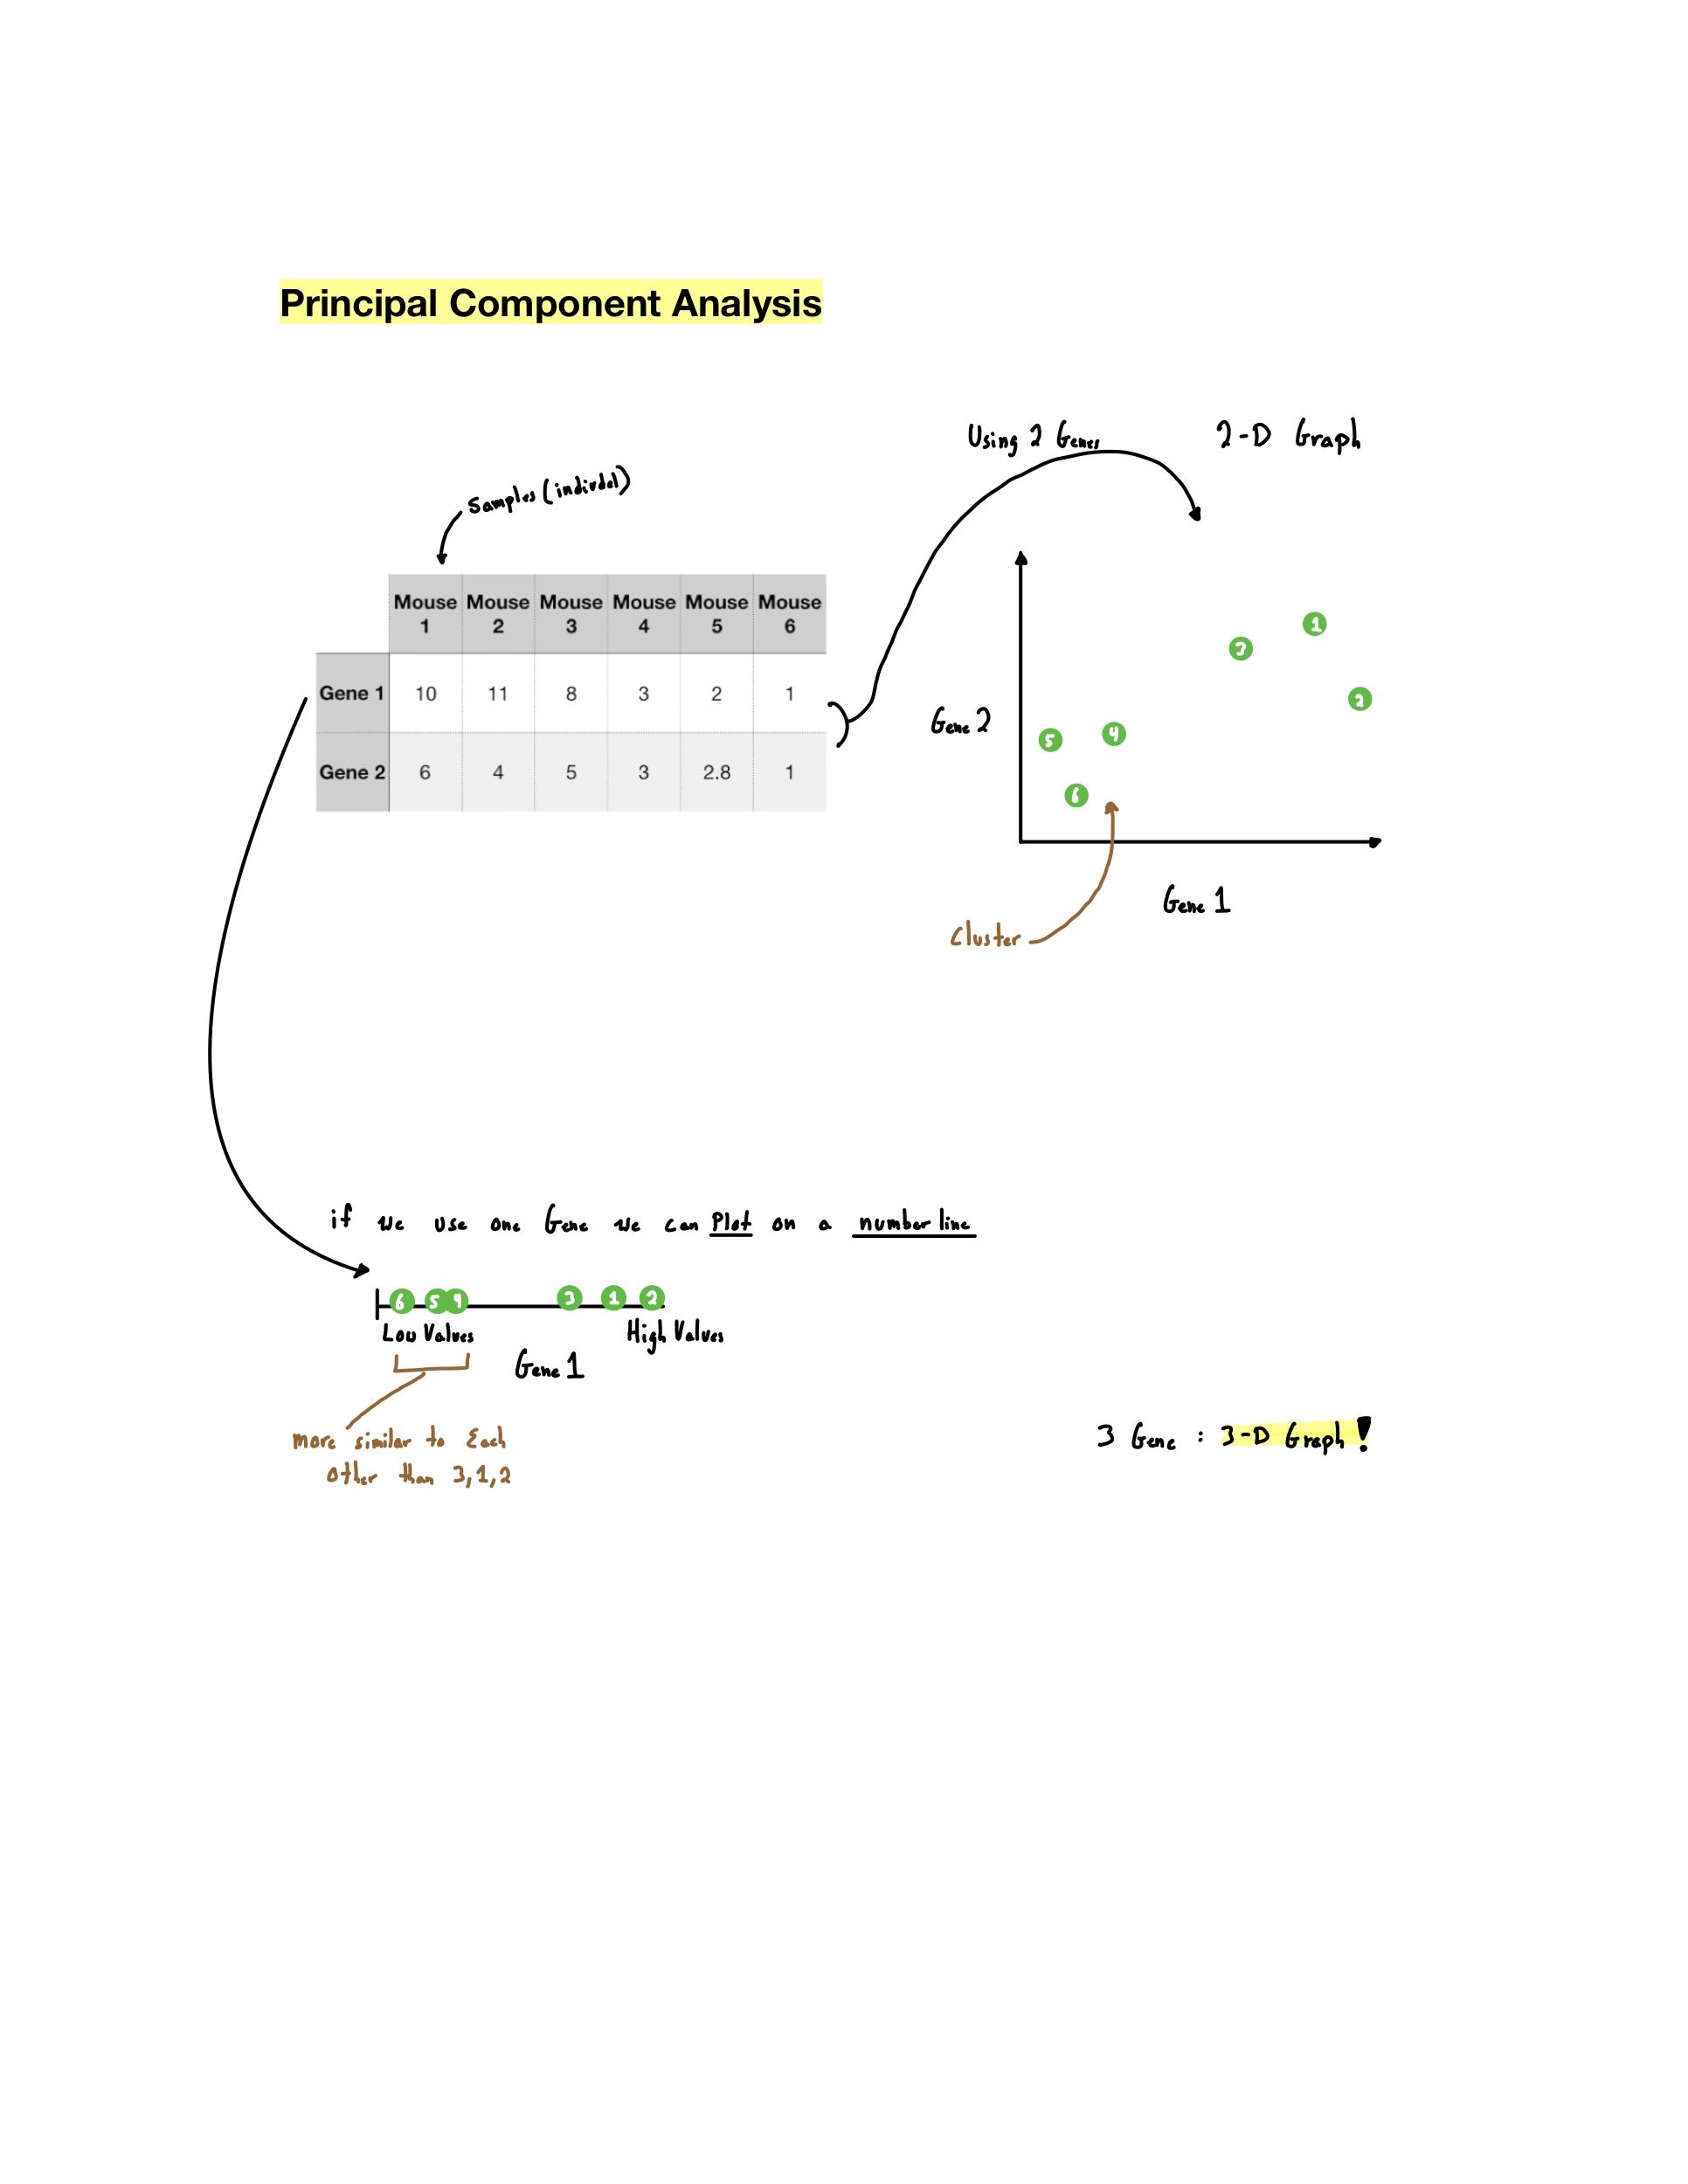 Principal Component Analysis
Using 2 Genes
2-D Graph
Samples (indivdal)
Mouse 1 Mouse 2 Mouse 3 Mouse 4 Mouse 5 Mouse 6
Gene 1 10 11 8 3 2 1
Gene 2 6 4 5 3 2.8 1
Gene 2
1
3
2
5 4
6
Gene 1
Cluster
if we use one Gene we can Plot on a number line
6 5 4 3 1 2
Low Values High Values
Gene 1
more similar to Each
other than 3,1,2
3 Gene : 3-D Graph!